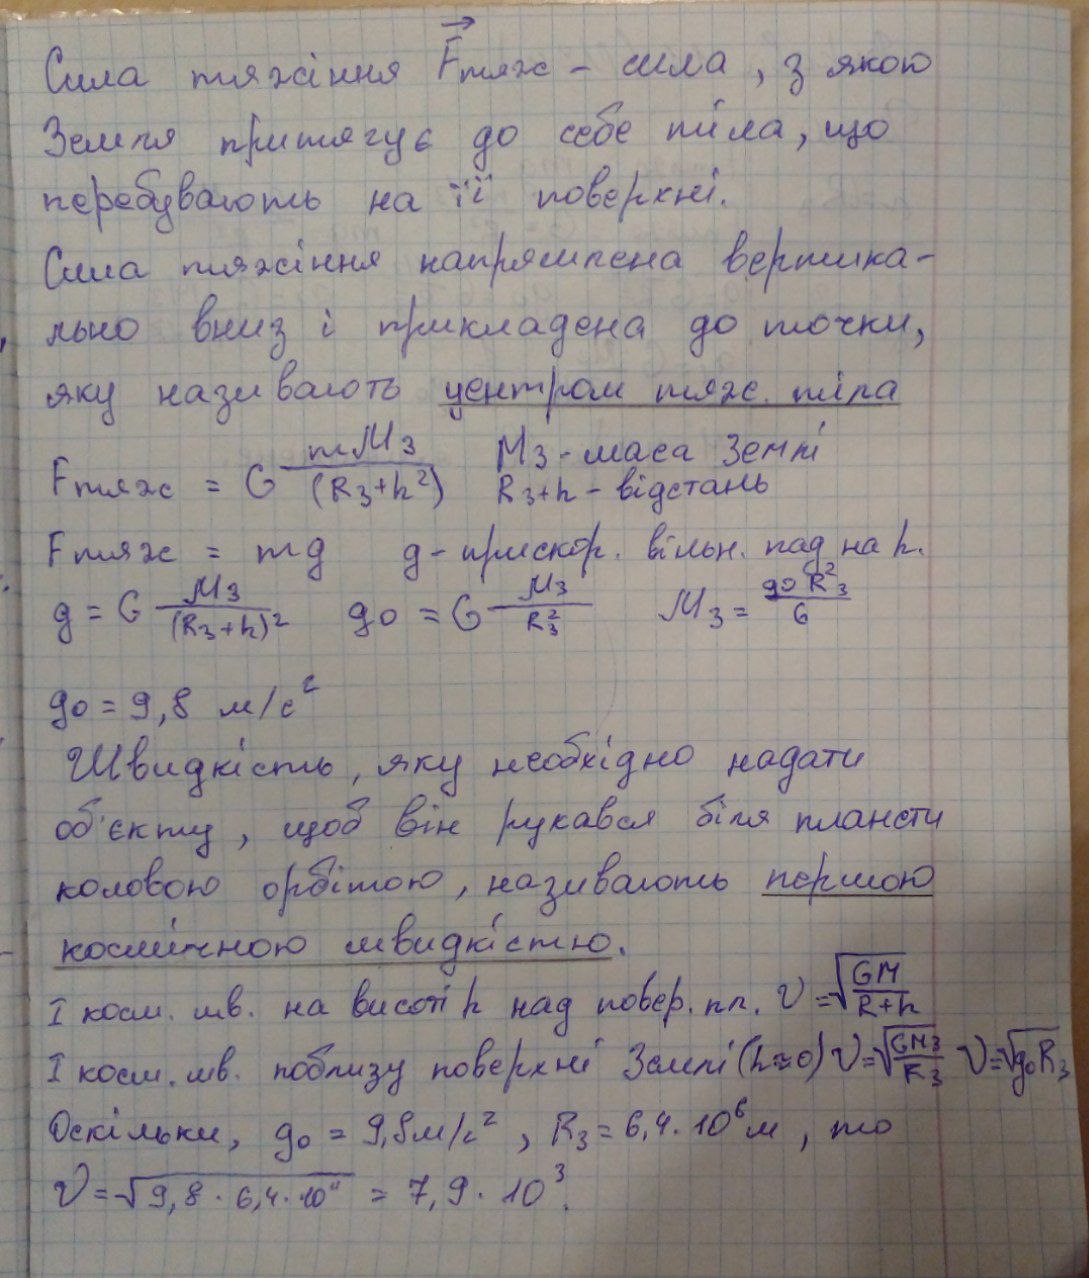 Сила тяжіння F⃗тяж – сила, з якою
Земля притягує до себе тіла, що
перебувають на її поверхні.
Сила тяжіння напрямлена вертика-
льно вниз і прикладена до точки,
яку називають центром тяж. тіла
Fтяж = G mMз/(Rз+h²) Mз - маса Землі
Rз+h – відстань
Fтяж = mg g - прискор. вільн. пад на h.
g = G Mз/(Rз+h)² g₀ = G Mз/Rз² Mз = g₀Rз²/G
g₀ = 9,8 м/с²
Швидкість, яку необхідно надати
об'єкту, щоб він рухався біля планети
коловою орбітою, називають першою
космічною швидкістю.
I косм. шв. на висоті h над повер. пл. v = √(GM/(R+h))
I косм. шв. поблизу поверхні Землі (h≈0) v=√(GMз/Rз) v=√(g₀Rз)
Оскільки, g₀ = 9,8м/с², Rз = 6,4·10⁶м, то
v = √(9,8 · 6,4 · 10⁶) = 7,9 · 10³.